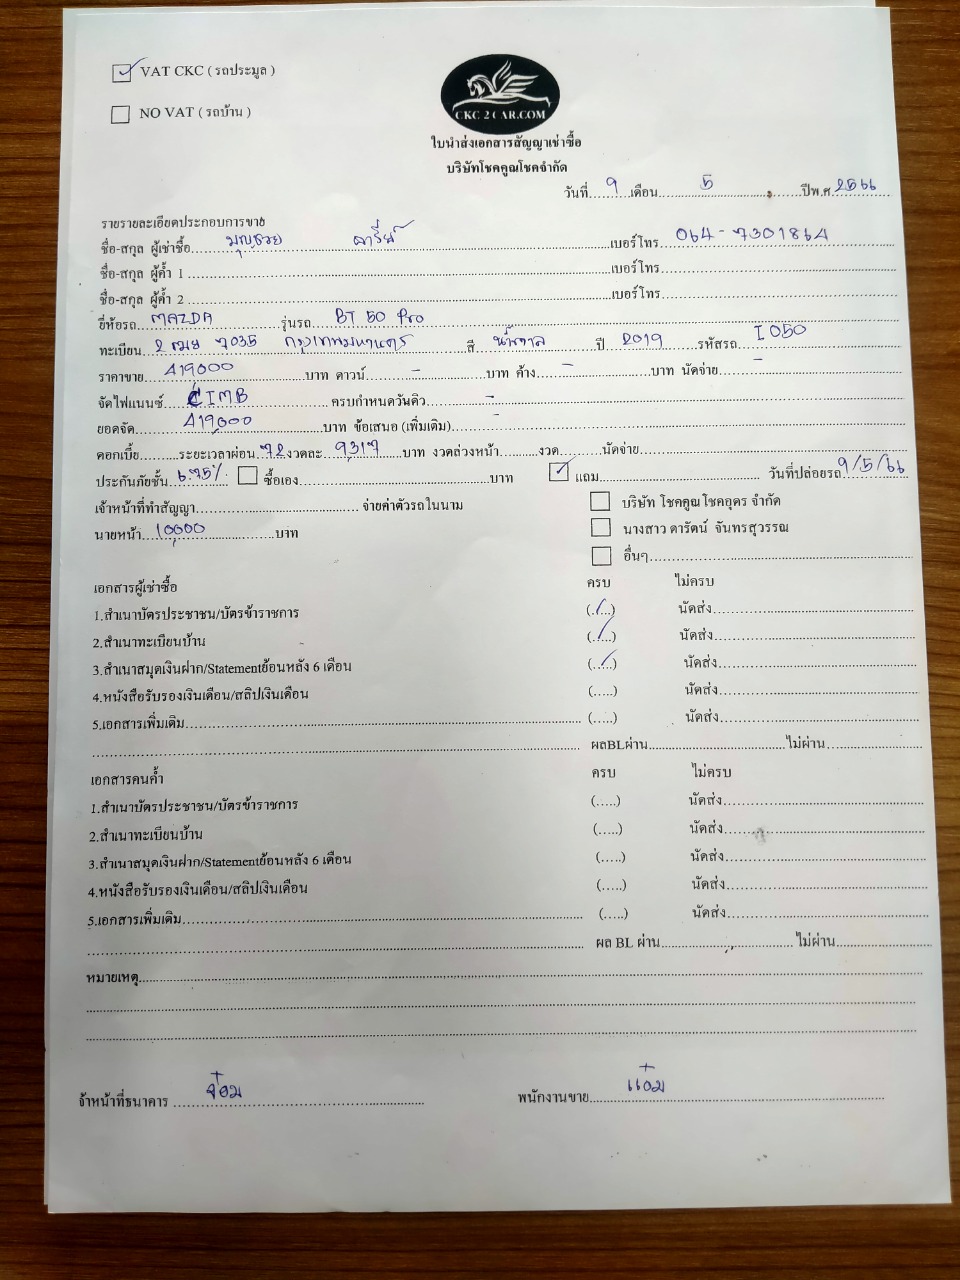 VAT CKC ( รถประมูล )
NO VAT ( รถบ้าน )
CKC 2 CAR.COM
ใบนำส่งเอกสารสัญญาเช่าซื้อ
บริษัทโชคคูณโชคจำกัด
วันที่ 9 เดือน 5 ปีพ.ศ 2566
รายรายละเอียดประกอบการขาย
ชื่อ-สกุล ผู้เช่าซื้อ บุญช่วย เบอร์โทร 064-7301864
ชื่อ-สกุล ผู้ค้ำ 1 เบอร์โทร
ชื่อ-สกุล ผู้ค้ำ 2 เบอร์โทร
ยี่ห้อรถ MAZDA รุ่นรถ BT 50 Pro
ทะเบียน 2 ฒฆ 7035 กรุงเทพมหานคร สี น้ำตาล ปี 2019 รหัสรถ I050
ราคาขาย 419000 บาท ดาวน์ - บาท ค้าง - บาท นัดจ่าย -
จัดไฟแนนซ์ CIMB ครบกำหนดวันคิว -
ยอดจัด 419000 บาท ข้อเสนอ (เพิ่มเติม) -
ดอกเบี้ย ระยะเวลาผ่อน 72 งวดละ 9317 บาท งวดล่วงหน้า งวด นัดจ่าย
ประกันภัยชั้น 6.75% ซื้อเอง บาท แถม วันที่ปล่อยรถ 9/5/66
เจ้าหน้าที่ทำสัญญา จ่ายค่าตัวรถในนาม บริษัท โชคคูณโชคอุดร จำกัด
นายหน้า 10000 บาท นางสาว ดารัตน์ จันทรสุวรรณ
อื่นๆ
เอกสารผู้เช่าซื้อ ครบ ไม่ครบ
1.สำเนาบัตรประชาชน/บัตรข้าราชการ (../..) นัดส่ง
2.สำเนาทะเบียนบ้าน (../..) นัดส่ง
3.สำเนาสมุดเงินฝาก/Statementย้อนหลัง 6 เดือน (../..) นัดส่ง
4.หนังสือรับรองเงินเดือน/สลิปเงินเดือน (.....) นัดส่ง
5.เอกสารเพิ่มเติม (.....) นัดส่ง
ผลBLผ่าน ไม่ผ่าน
เอกสารคนค้ำ ครบ ไม่ครบ
1.สำเนาบัตรประชาชน/บัตรข้าราชการ (.....) นัดส่ง
2.สำเนาทะเบียนบ้าน (.....) นัดส่ง
3.สำเนาสมุดเงินฝาก/Statementย้อนหลัง 6 เดือน (.....) นัดส่ง
4.หนังสือรับรองเงินเดือน/สลิปเงินเดือน (.....) นัดส่ง
5.เอกสารเพิ่มเติม (.....) นัดส่ง
ผล BL ผ่าน ไม่ผ่าน
หมายเหตุ
จ้าหน้าที่ธนาคาร จ๋อม พนักงานขาย แอ๋ม